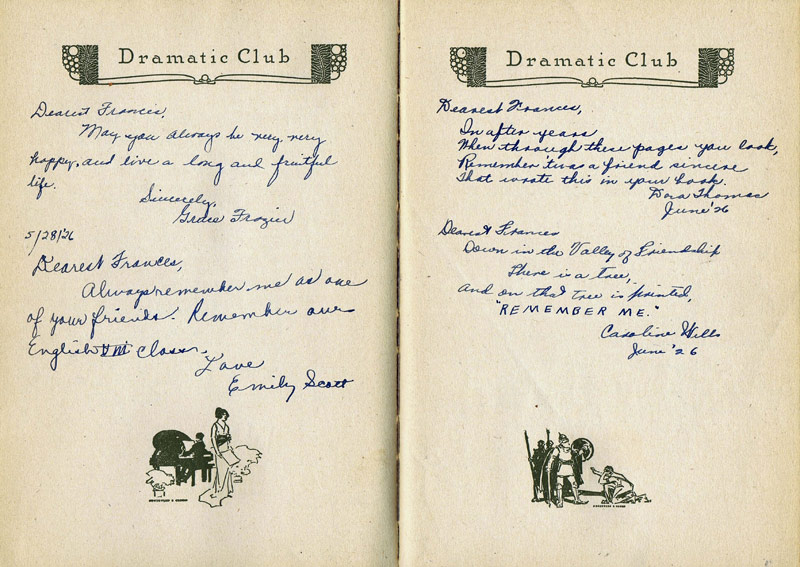 Dramatic Club
Dearest Frances,
May you always be very, very
happy, and live a long and fruitful
life.
Sincerely,
Grace Frazier
5/28/26
Dearest Frances,
Always remember me as one
of your friends. Remember our
English VIII Class.
Love
Emily Scott
Dramatic Club
Dearest Frances,
In after years
When through these pages you look,
Remember 'twas a friend sincere
That wrote this in your book.
Dora Thomas
June '26
Dearest Frances
Down in the Valley of Friendship
There is a tree,
And on that tree is printed,
"REMEMBER ME."
Caroline Wills
June '26